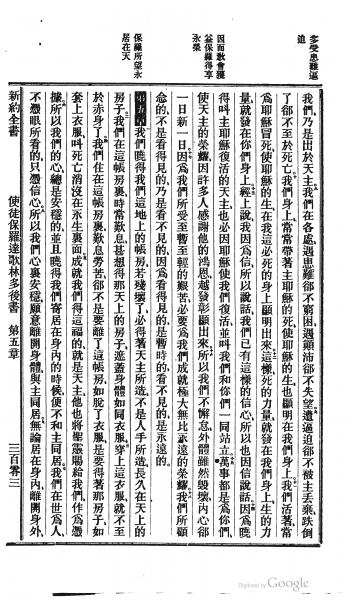 多受患難逼
迫
因而敎會獲
益保羅得享
永榮
保羅所望永
居在天
我們、乃是出於天主我們在各處遇患難卻不窮困遇顛沛卻不失望遭逼迫卻不被主丟棄跌倒
了卻不至於死亡我們身上常常帶著主耶穌的死使耶穌的生也顯明在我們身上我們活著、常
爲耶穌冒死使耶穌的生在我這必死的身上顯明出來這樣死的力量就發在我們身上生的力
量就發在你們身上經上說我因爲信所以說話我們已有這樣的信心所以也因信說話因爲曉
得叫主耶穌復活的天主也必因耶穌使我們復活並叫我們和你們一同站立萬事都是爲你們
使天主的榮耀因許多人感謝他的鴻恩越發彰顯出來所以我們不懈怠外體雖然毀壞內心卻
一日新一日因爲我們所受至暫至輕的艱苦必要爲我們成就極大無比永遠的榮耀我們所顧
念的不是看得見的乃是看不見的因爲看得見的是暫時的看不見的是永遠的
第五章我們曉得我們這地上的帳房若殘壞了必得著天主所造不是人手所造長久在天上的
房子我們在這帳房裏時常歎息甚想得那天上的房子遮蓋身體如同衣服穿上這衣服就不至
於赤身了我們住在這帳房裏歎息勞苦卻不是要離了這帳房如脫了衣服是要得著那房子如
套上衣服叫死亡消沒在永生裏面成就我們得這福的就是天主他也將聖靈賜給我們作爲憑
據所以我們的心總是安穩的並且曉得我們寄居在身內的時候便不和主同居我們在世爲人
不憑眼所看的只憑信心所以我們心裏安穩願意離開身體與主同居無論居在身內離開身外
新約全書 使徒保羅達哥林多後書 第五章 三百零三
Digitized by Google